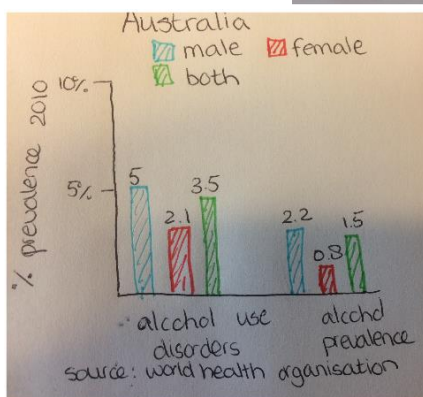 Australia
male female
both
10%
% prevalence 2010
5%
5 2.1 3.5 2.2 0.8 1.5
alcohol use disorders
alcohol prevalence
source: world health organisation